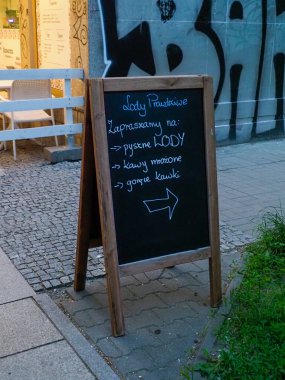 Lody Prawdziwe
Zapraszamy na:
→ pyszne LODY
→ kawy mrożone
→ gorące kawki